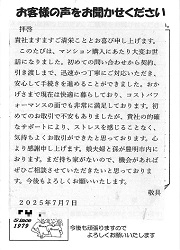 お客様の声をお聞かせください
拝啓
貴社ますますご清栄のこととお喜び申し上げます。
このたびは、マンション購入にあたり大変お世
話になりました。初めての問い合わせから契約、
引き渡しまで、迅速かつ丁寧にご対応いただき、
安心して手続きを進めることができました。おか
げさまで現在は快適に暮らしており、コストパフ
ォーマンスの面でも非常に満足しております。初
めてのお取引で不安もありましたが、貴社の的確
なサポートにより、ストレスを感じることなく、
気持ちよくお取引ができたと思っております。心
より感謝申し上げます。娘夫婦と孫が豊明市内に
おります。まだ持ち家がないので、機会があれば
ぜひご相談させていただきたいと思っておりま
す。今後もよろしくお願いいたします。
敬具
2025年7月7日
Since
1979
今後も頑張りますので
よろしくお願いいたします